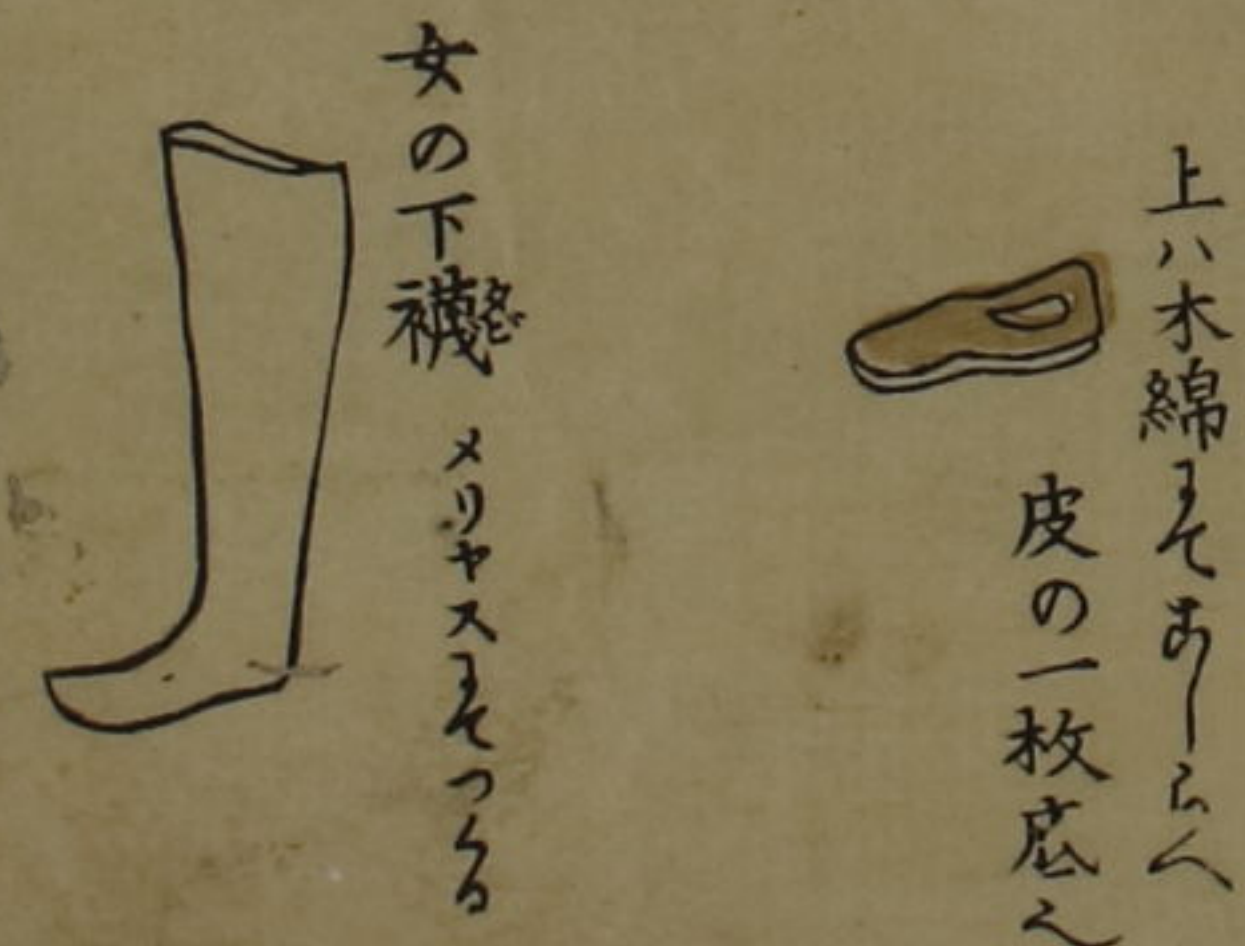 上ハ木綿にてこしらへ
皮の一枚底也
女の下襪 メリヤスにてつくる